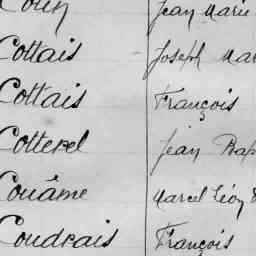 Jean Marie
Cottais Joseph
Cottais François
Cotterel Jean
Couâme Marcel Léon
Coudrais François